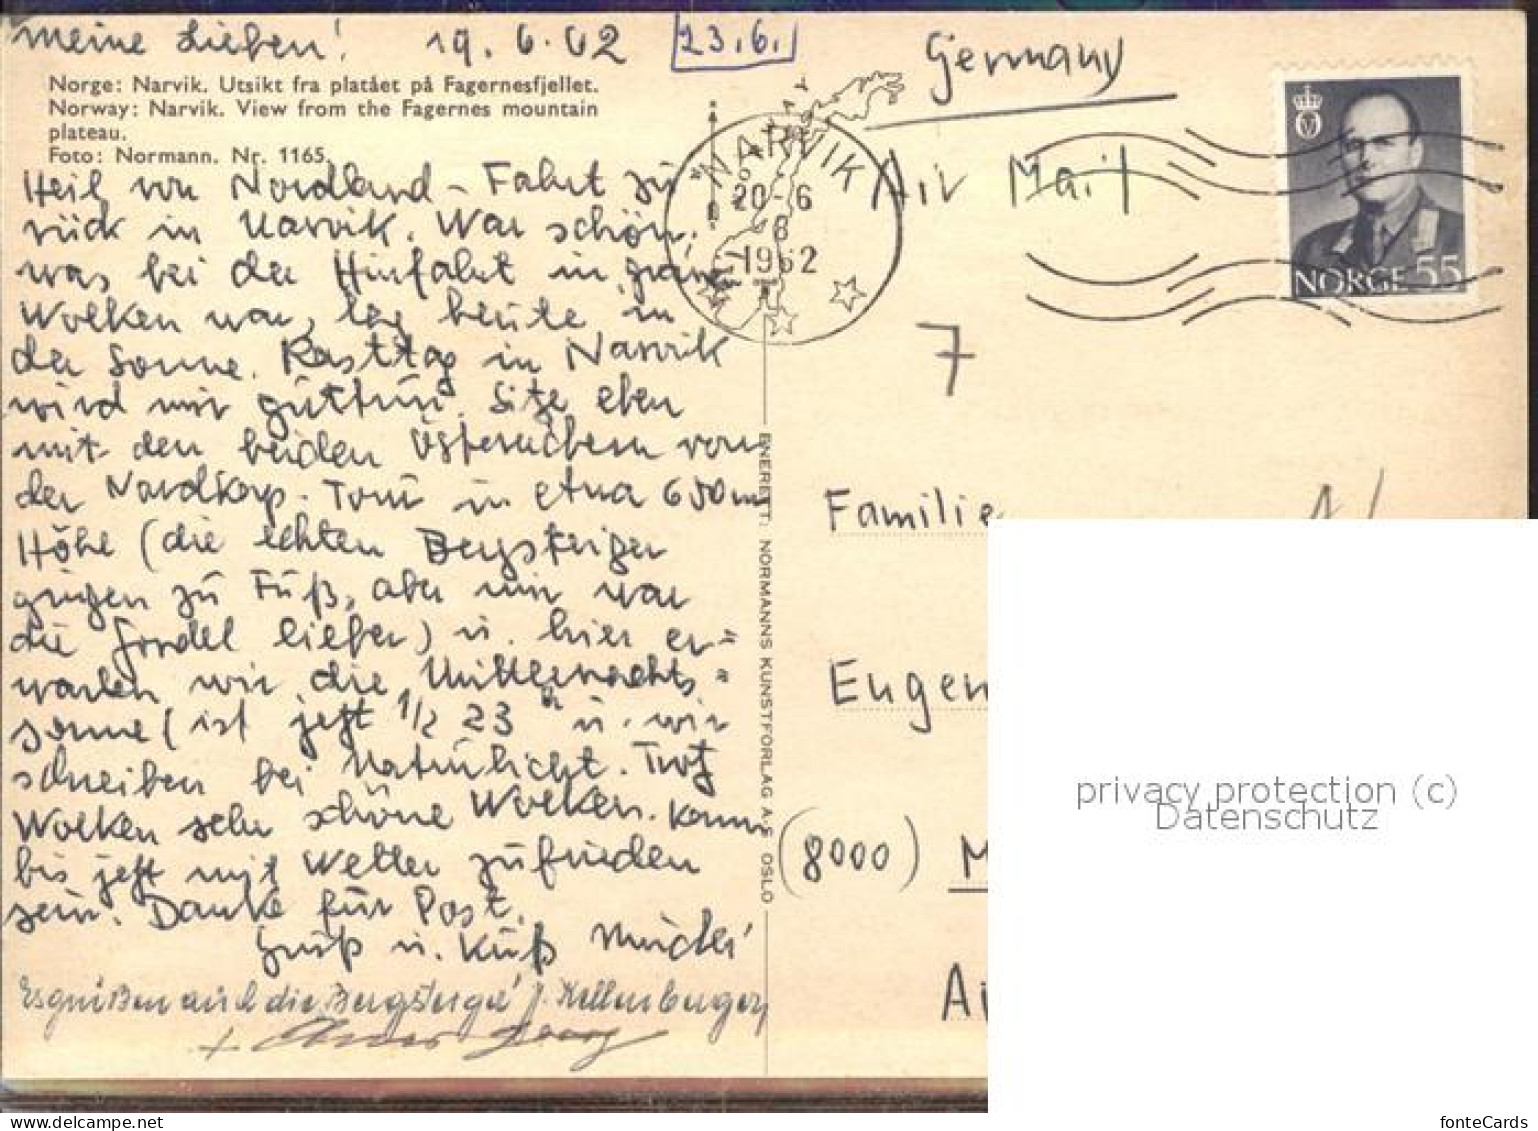 Meine Lieben! 19.6.62 23.6.
Norge: Narvik. Utsikt fra platået på Fagernesfjellet.
Norway: Narvik. View from the Fagernes mountain
plateau.
Foto: Normann. Nr. 1165.
Heil von Nordland-Fahrt zu
rück in Narvik. War schön,
was bei der Hinfahrt in graue
Wolken war, lag heute in
der Sonne. Rasttag in Narvik
wird mir guttun. Sitze eben
mit den beiden Österreichern von
der Nordkap-Tour in etwa 650 m
Höhe (die echten Bergsteiger
gingen zu Fuß, aber mir war
die Gondel lieber) u. hier er=
warten wir die Mitternachts=
sonne (ist jetzt 1/2 23 h u. wir
schreiben bei Naturlicht. Trotz
Wolken sehr schöne Wolken. Kann
bis jetzt mit Wetter zufrieden
sein. Danke für Post.
Gruß u. Kuß
Es grüßen auch die Bergsteiger J. Kellenberger
+
NARVIK
20-6
8
1962
Germany
Air Mail
NORGE 55
7
ENERETT: NORMANNS KUNSTFORLAG A.S. OSLO
Familie
Eugen
(8000) M
privacy protection (c)
Datenschutz
fonteCards